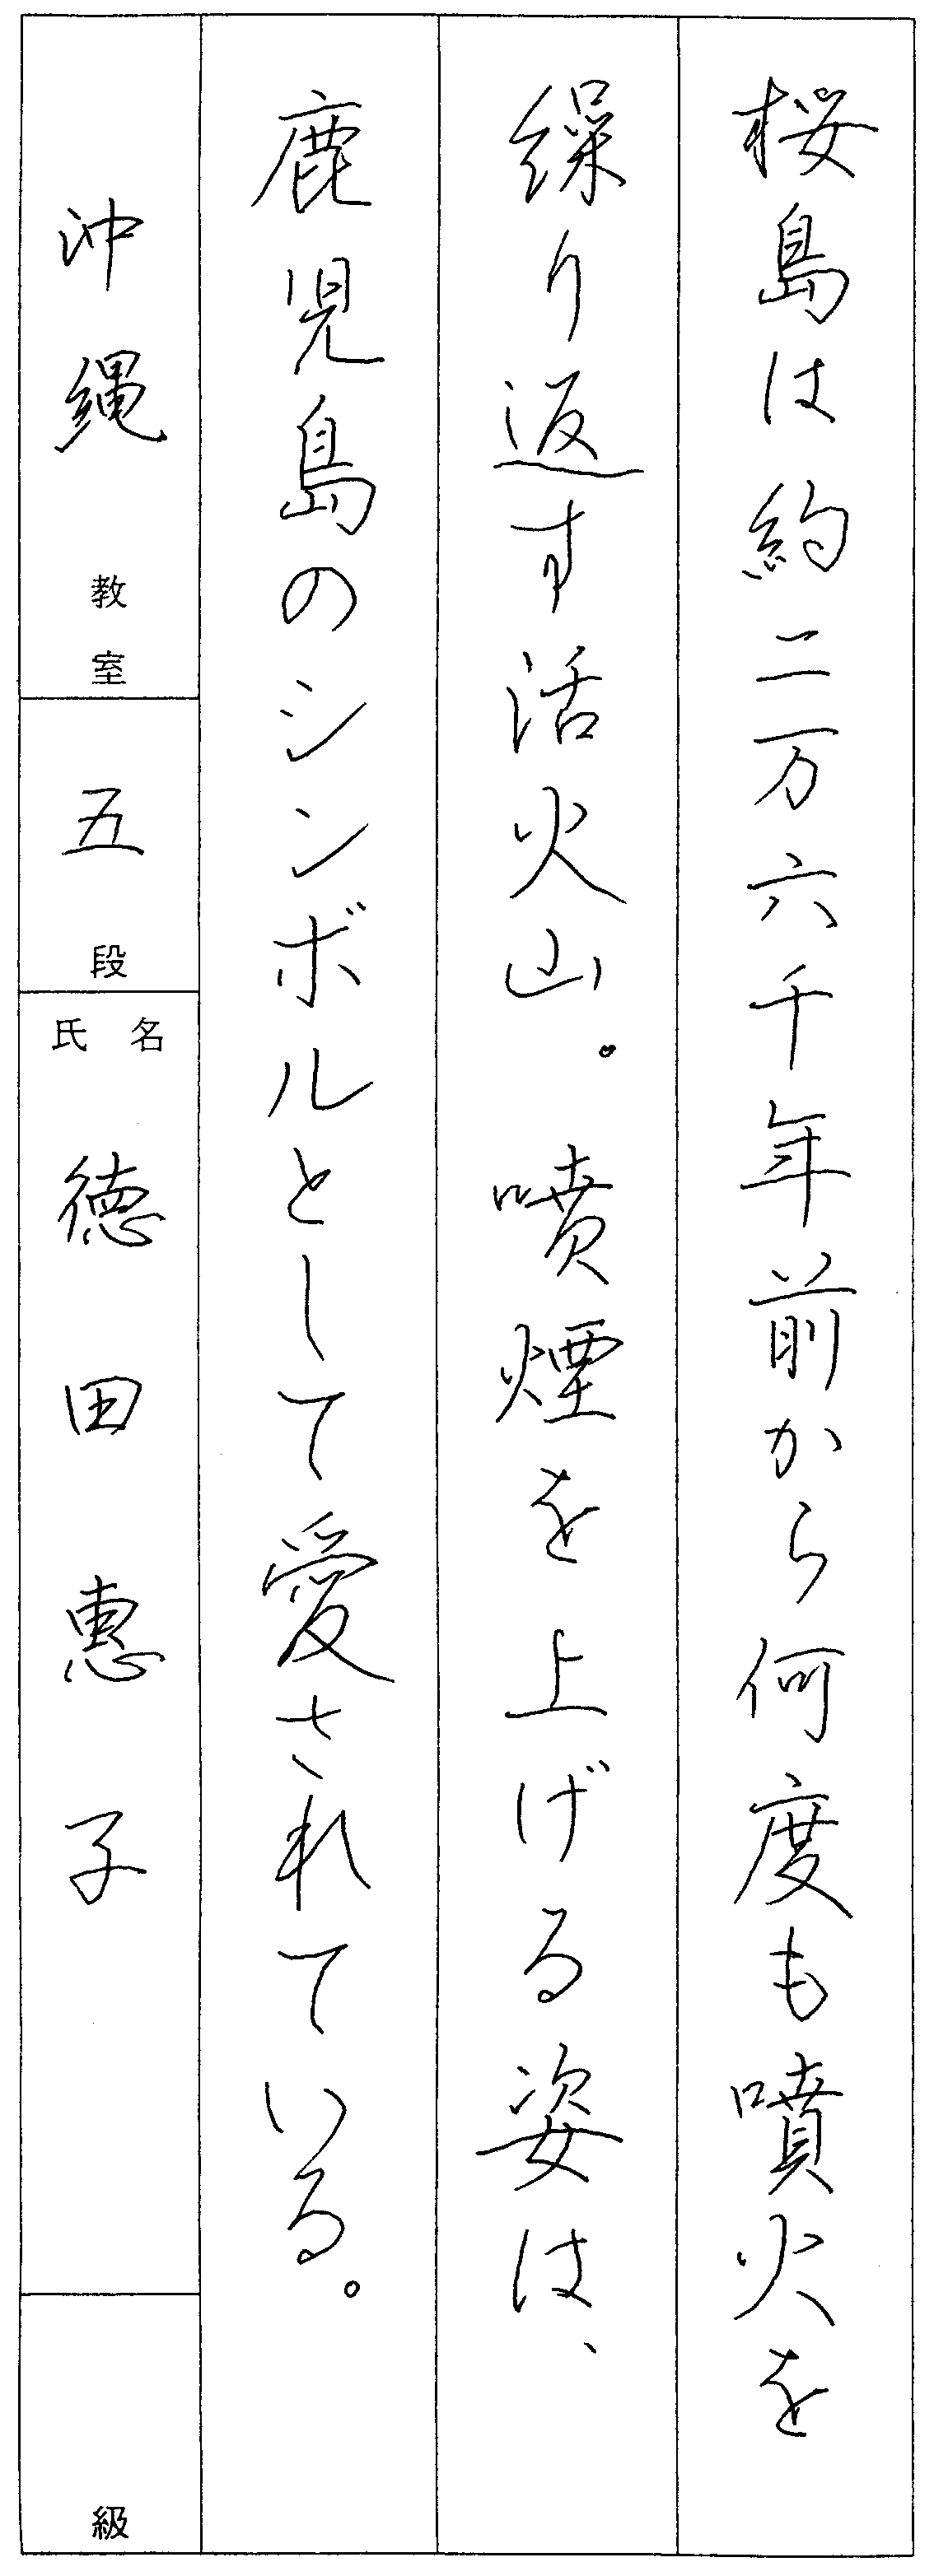 桜島は約二万六千年前から何度も噴火を
繰り返す活火山。噴煙を上げる姿は、
鹿児島のシンボルとして愛されている。
沖縄教室
五段
氏名 徳田恵子
級